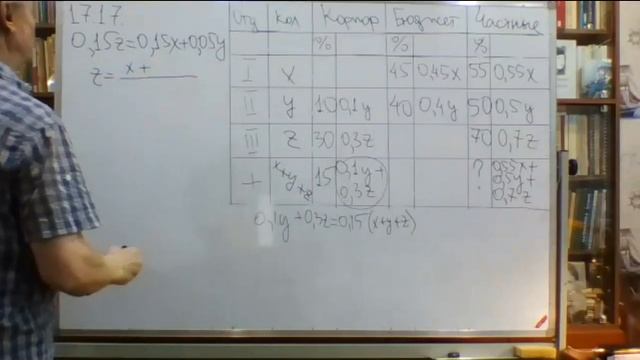 1717.
0,15z=0,15x+0,05y
z= x+
Кол Корпор Бюджет Частные
% % %
I x 45 0,45x 55 0,55x
II y 10 0,1y 40 0,4y 50 0,5y
III z 30 0,3z 70 0,7z
+ x+y+z 15 0,1y+0,3z ? 0,55x+0,5y+0,7z
0,1y+0,3z=0,15(x+y+z)